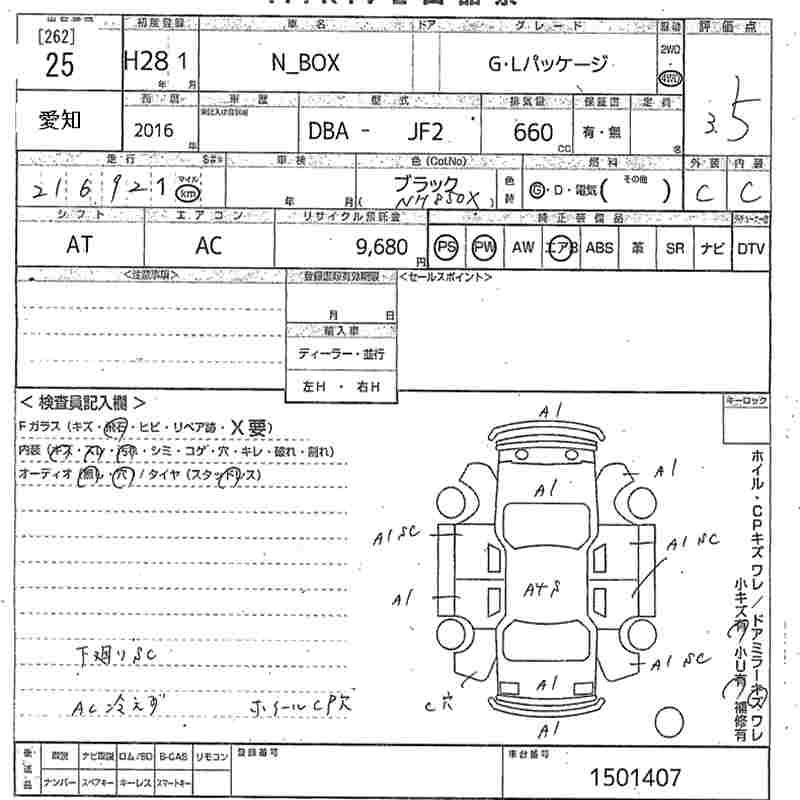 初度登録 車名 ドア グレード 駆動 評価点
[262]
25 H28 1 N_BOX G・Lパッケージ 2WD ・ 4WD 3.5
年 月
愛知 西暦 車歴 型式 排気量 保証書 定員
2016 年 DBA - JF2 660 CC 有・無 名
走行 車検 色(Col.No) 燃料 外装 内装
216921 マイル km 年 月 ブラック ( NH850X ) 色替 G・D・電気( その他 ) C C
シフト エアコン リサイクル預託金 純正装備品
AT AC 9,680 円 PS PW AW エアB ABS 革 SR ナビ DTV
<注意事項> 登録書類有効期限 <セールスポイント>
月 日
輸入車
ディーラー・並行
左H ・ 右H
<検査員記入欄> キーロック
Fガラス(キズ・飛石・ヒビ・リペア跡・X要)
内装(キズ・スレ・汚れ・シミ・コゲ・穴・キレ・破れ・割れ)
オーディオ(無し・穴)/タイヤ(スタッドレス)
A1
A1
A1
A1 SC
A1 SC
A1
A4 S
A1 SC
C穴
A1
A1
下廻りSC
AC冷えず ホイールCP欠
ホイル・CPキズワレ/ドアミラーキズワレ
小キズ有 小U有 補修有
後送品 取説 ナビ取説 ロム/SD B-CAS リモコン 登録番号 車台番号
ナンバー スペアキー キーレス スマートキー 1501407